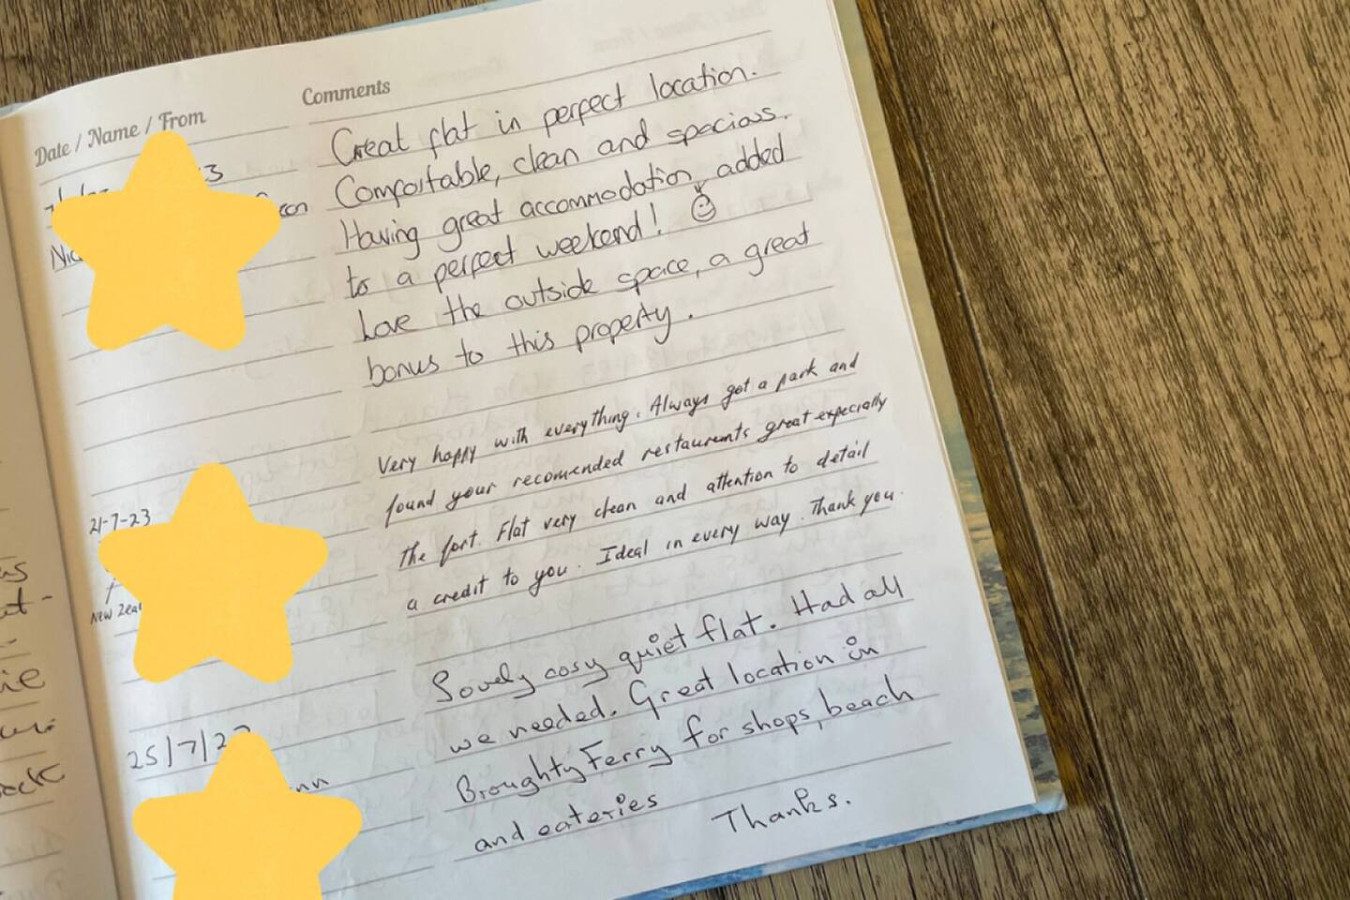 Date / Name / From
Comments
3
Great flat in perfect location.
Comfortable, clean and specioss.
Having great accommodation, added
to a perfect weekend!
Love the outside space, a great
bonus to this property.
21-7-23
New Zea
Very happy with everything. Always got a park and
found your recomended restaurents great expecially
the fort. Flat very clean and attention to detail
a credit to you. Ideal in every way. Thank you.
25/7/2
nn
Lovely cosy quiet flat. Had all
we needed. Great location in
Broughty Ferry for shops, beach
and eateries
Thanks.